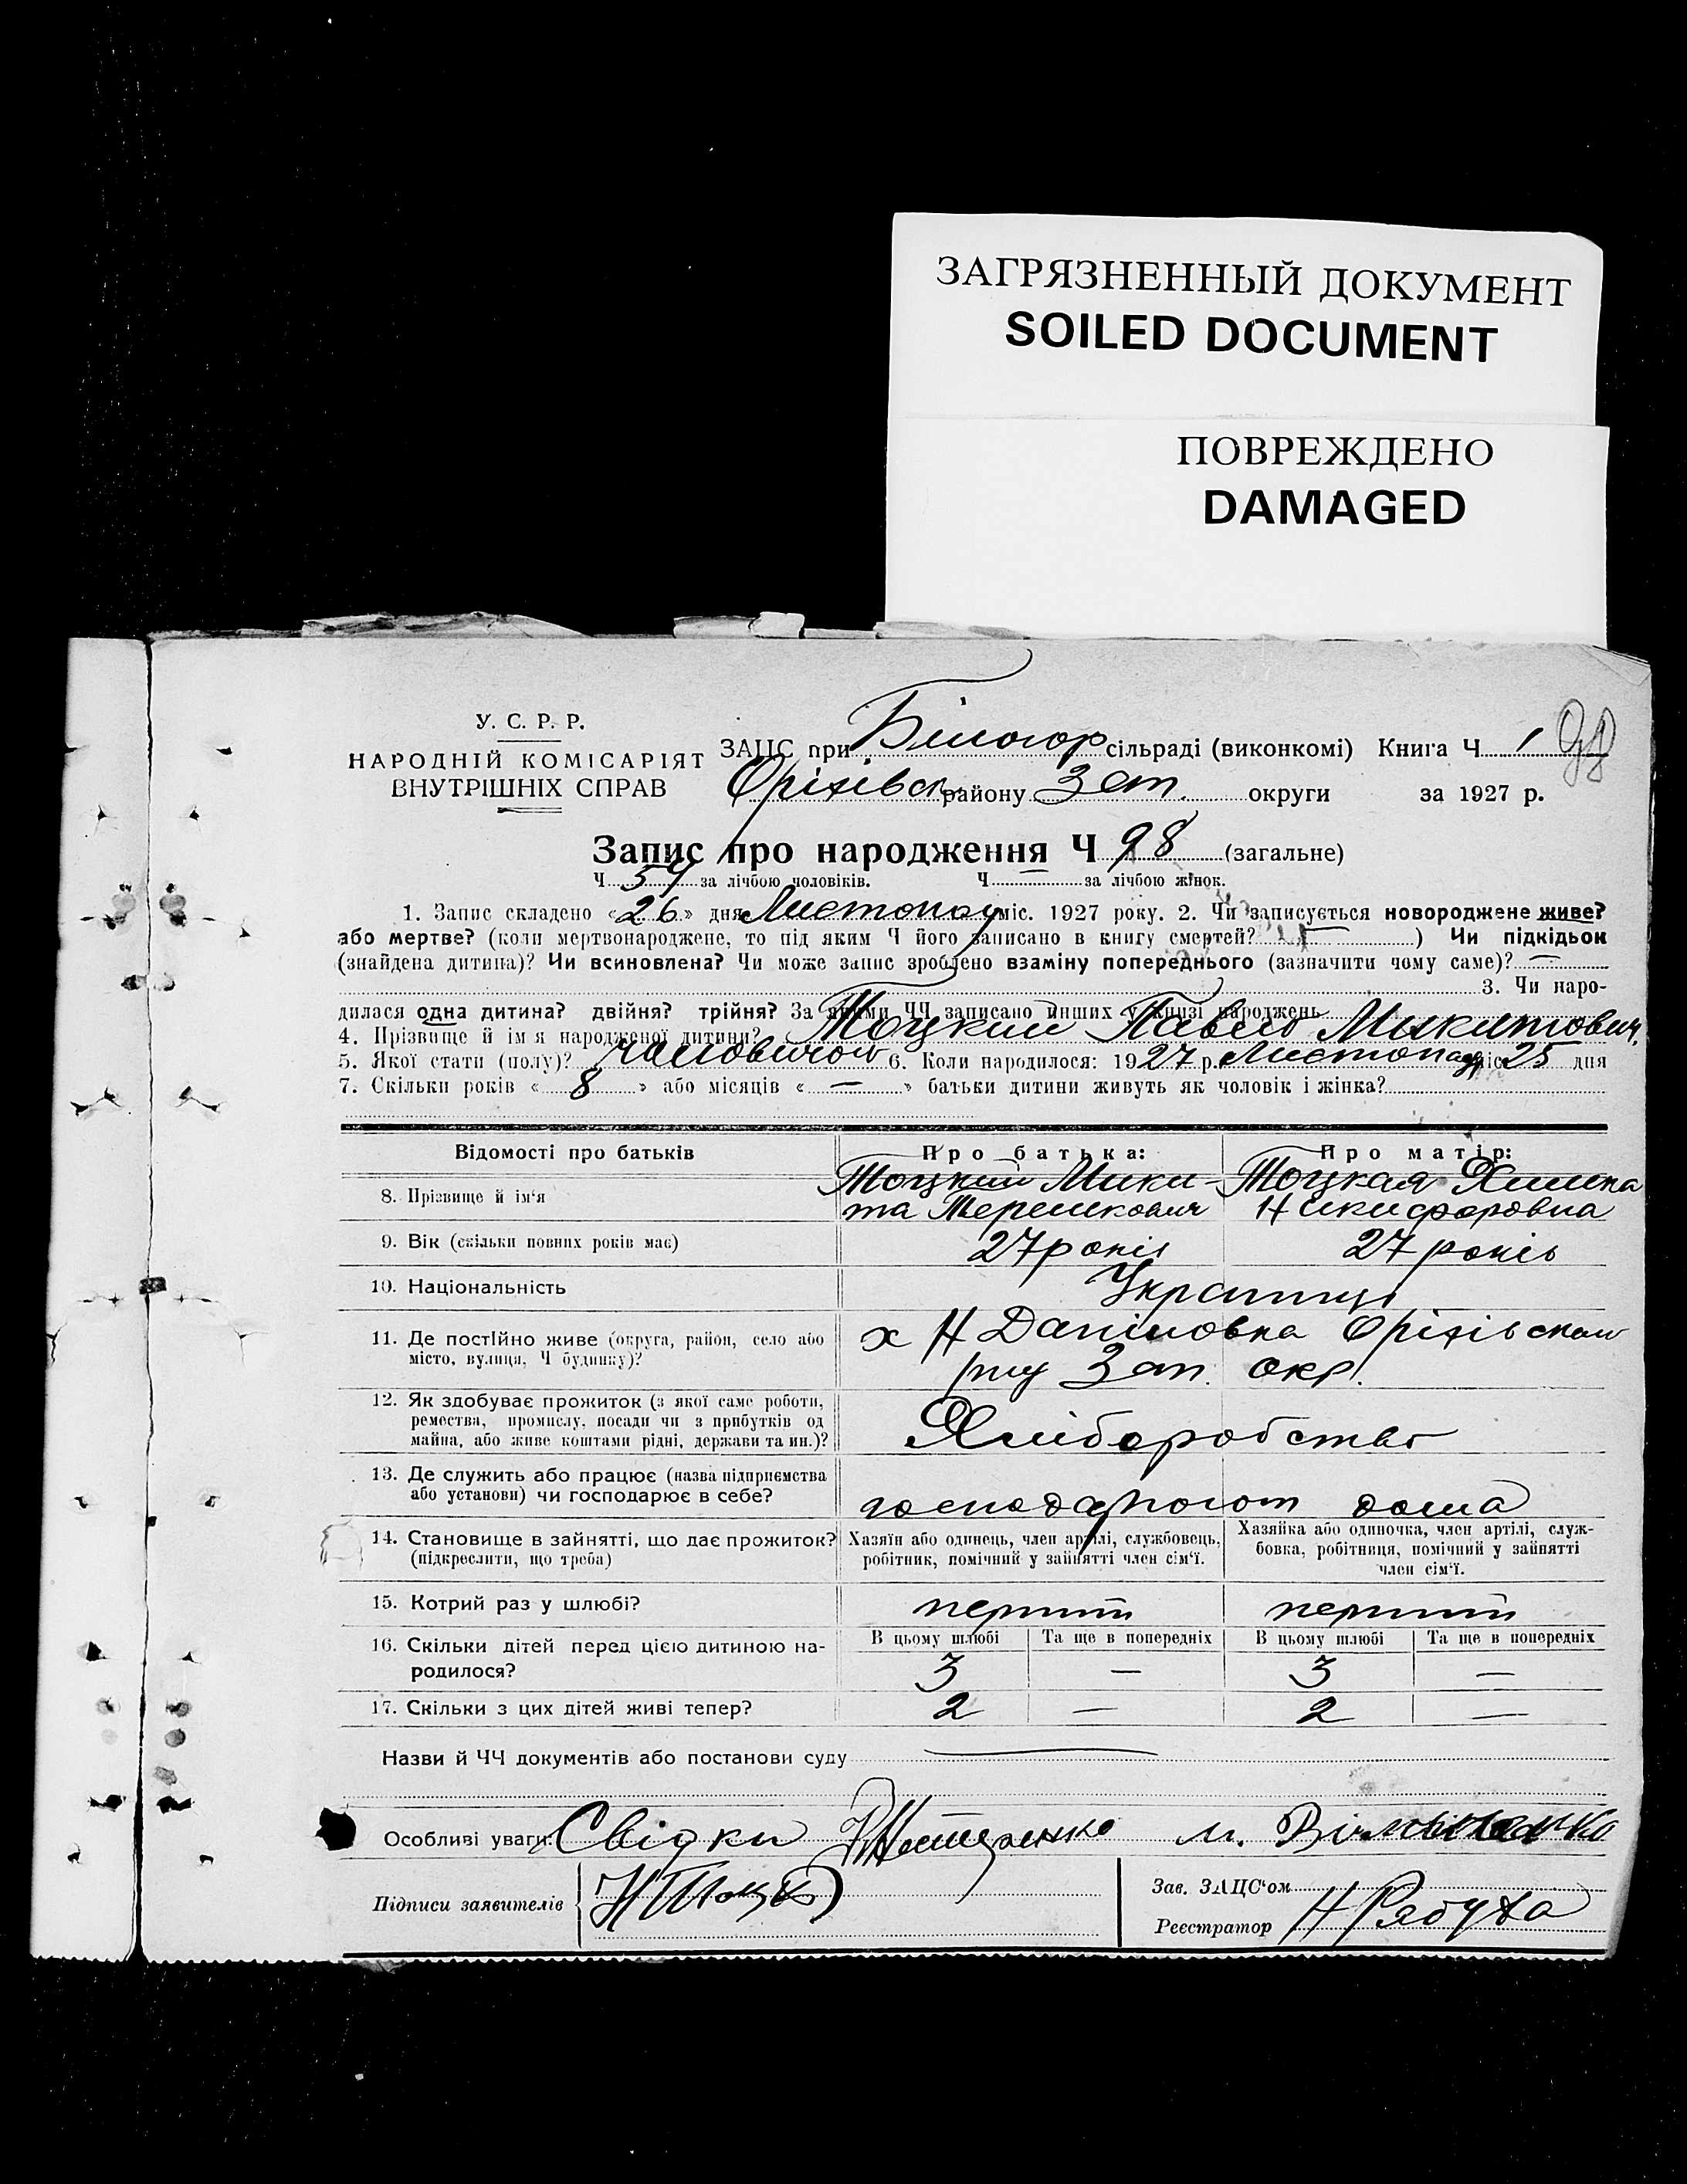 ЗАГРЯЗНЕННЫЙ ДОКУМЕНТ
SOILED DOCUMENT
ПОВРЕЖДЕНО
DAMAGED
У. С. Р. Р.
НАРОДНІЙ КОМІСАРІЯТ
ВНУТРІШНІХ СПРАВ
ЗАЦС при Білогор сільраді (виконкомі) Книга Ч 1
98
Оріхівськ району Зап. округи за 1927 р.
Запис про народження Ч 98 (загальне)
Ч 54 за лічбою чоловіків. Ч — за лічбою жінок.
1. Запис складено «26» дня Листопад міс. 1927 року. 2. Чи записується новороджене живе?
або мертве? (коли мертвонароджене, то під яким Ч його записано в книгу смертей? — ) Чи підкідьок
(знайдена дитина)? Чи всиновлена? Чи може запис зроблено взаміну попереднього (зазначити чому саме)? —
3. Чи наро-
дилася одна дитина? двійня? трійня? За якими ЧЧ записано инших у книзі народжень
4. Прізвище й ім'я народженої дитини? Тоцкий Павло Микитович.
5. Якої стати (полу)? чоловичой 6. Коли народилося: 1927 р. Листопад міс 25 дня
7. Скільки років « 8 » або місяців « — » батьки дитини живуть як чоловік і жінка?
Відомості про батьків Про батька: Про матір:
8. Прізвище й ім'я Тоцкий Мики- Тоцкая
та Терешкович Никифоровна
9. Вік (скільки повних років має) 27 років 27 років
10. Національність Українці
11. Де постійно живе (округа, район, село або х Н Даніловка Оріхівськом
місто, вулиця, Ч будинку)? р-ну Зап. окр.
12. Як здобуває прожиток (з якої саме роботи,
ремества, промислу, посади чи з прибутків од Хліборобство
майна, або живе коштами рідні, держави та ин.)?
13. Де служить або працює (назва підприємства
або установи) чи господарює в себе? господарюют дома
14. Становище в зайнятті, що дає прожиток? Хазяїн або одинець, член артілі, службовець, Хазяйка або одиночка, член артілі, служ-
(підкреслити, що треба) робітник, помічний у зайнятті член сім'ї. бовка, робітниця, помічний у зайнятті
член сім'ї.
15. Котрий раз у шлюбі? перший перший
16. Скільки дітей перед цією дитиною на- В цьому шлюбі Та ще в попередніх В цьому шлюбі Та ще в попередніх
родилося? 3 — 3 —
17. Скільки з цих дітей живі тепер? 2 — 2 —
Назви й ЧЧ документів або постанови суду —
Особливі уваги: Свідки Нестеренко м.
Підписи заявителів Н Тоцкий Зав. ЗАЦС'ом
Реєстратор Н Рябуха